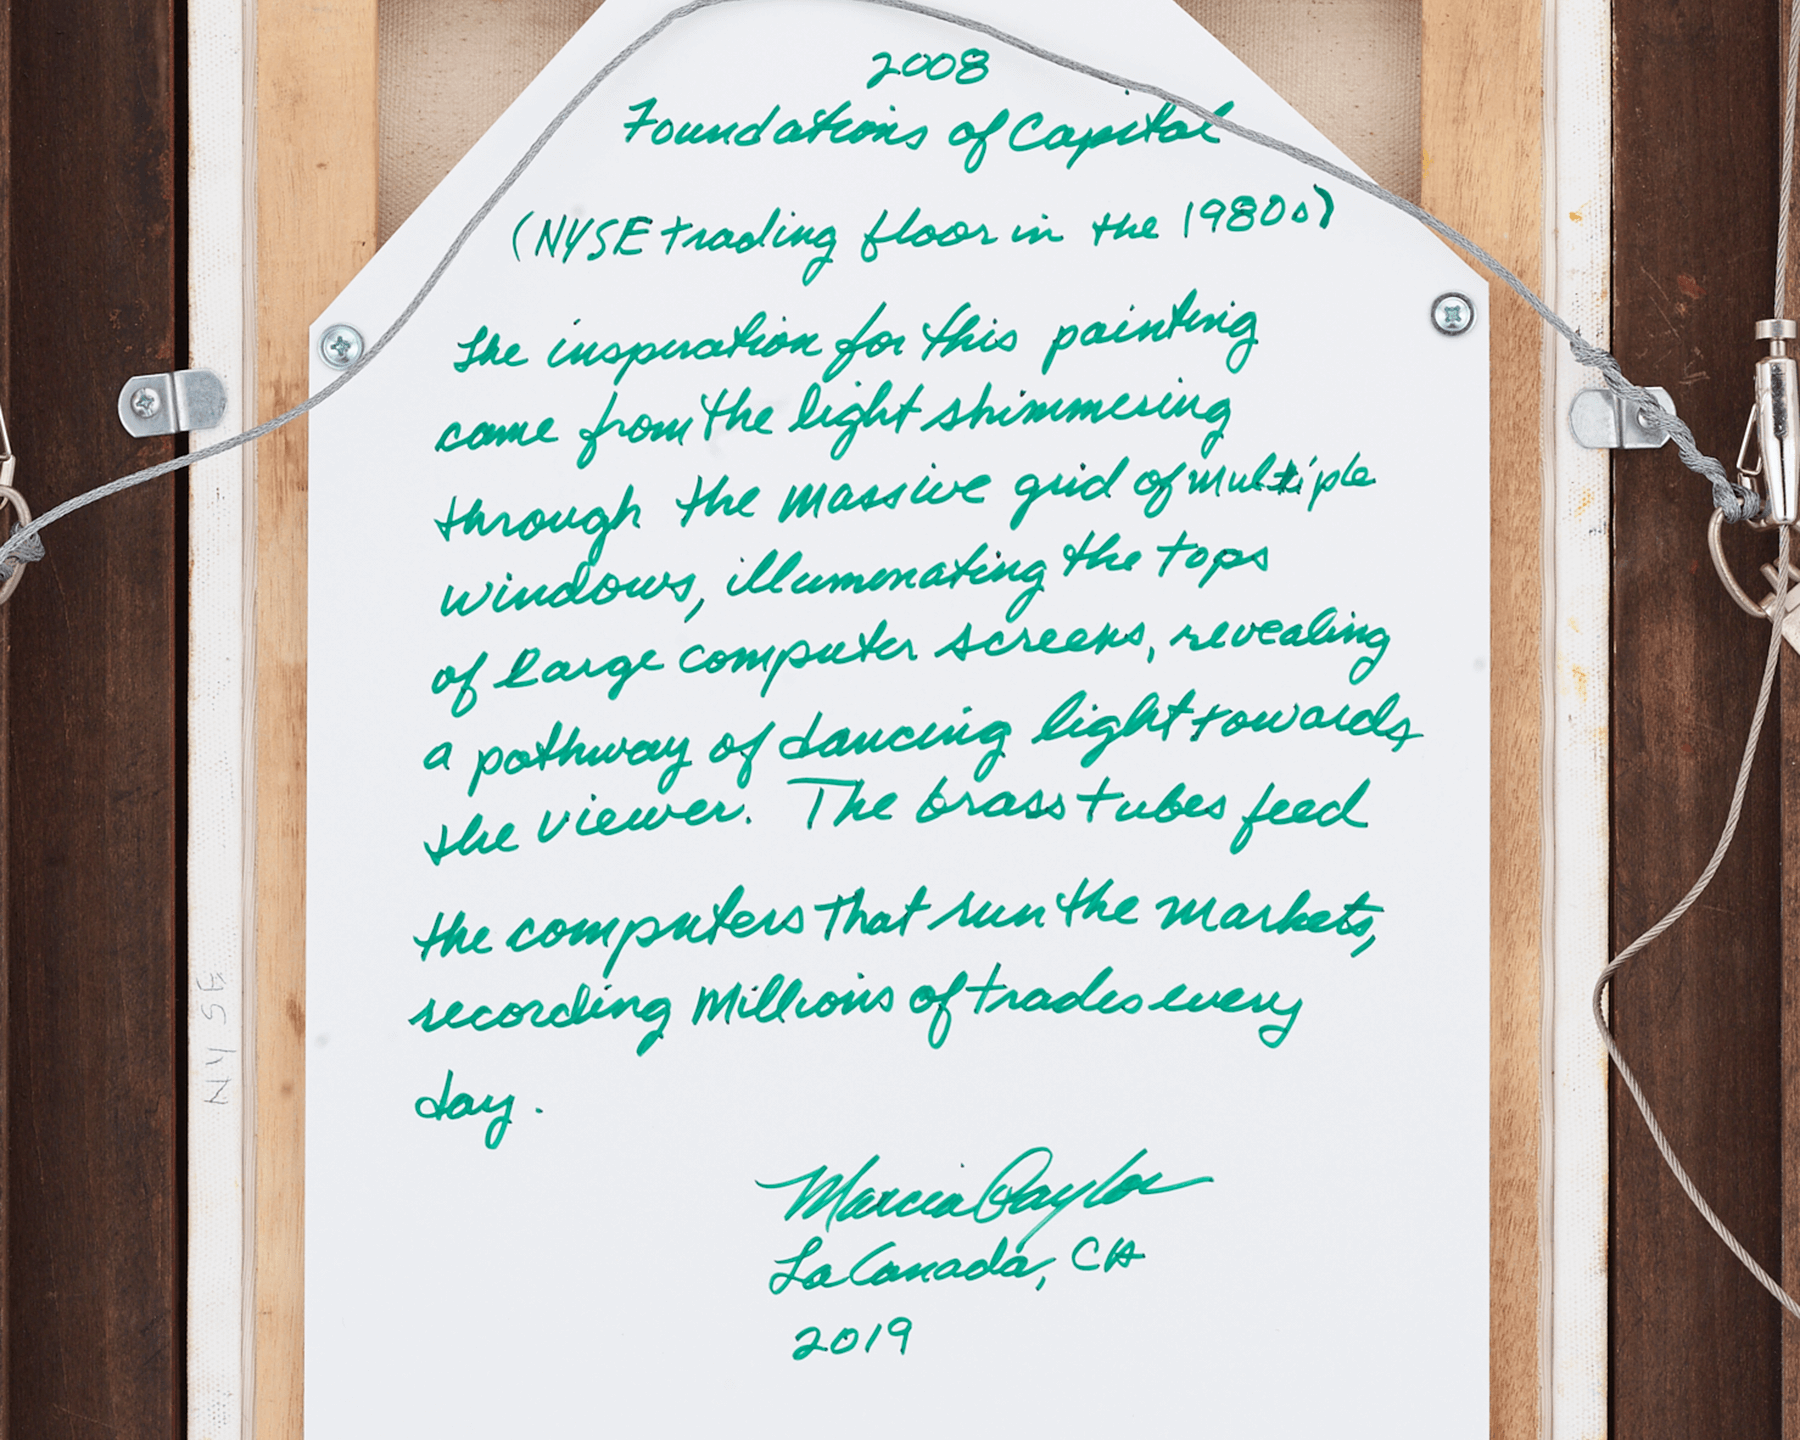 2008
Foundations of Capital
(NYSE trading floor in the 1980s)
The inspiration for this painting
came from the light shimmering
through the massive grid of multiple
windows, illuminating the tops
of large computer screens, revealing
a pathway of dancing light towards
the viewer. The brass tubes feed
the computers that run the markets,
recording Millions of trades every
day.
Marcia Baylor
La Canada, CA
2019
NYSE